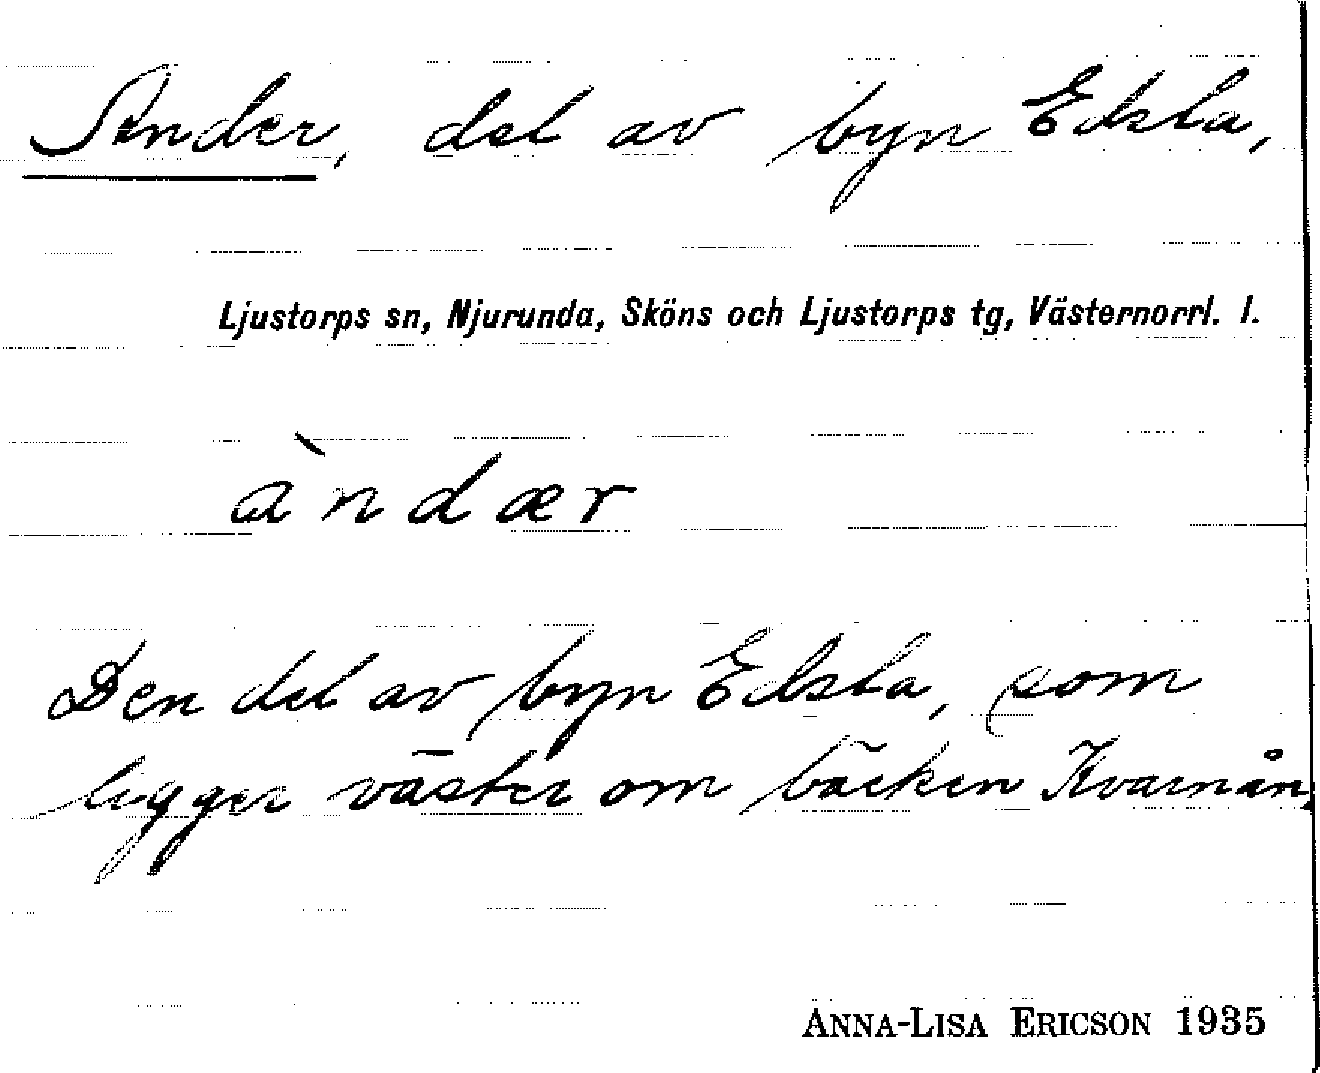 Ander, del av byn Edsta,
Ljustorps sn, Njurunda, Sköns och Ljustorps tg, Västernorrl. l.
àndær
Den del av byn Edsta, som
ligger väster om bäcken Kvarnån.
ANNA-LISA ERICSON 1935